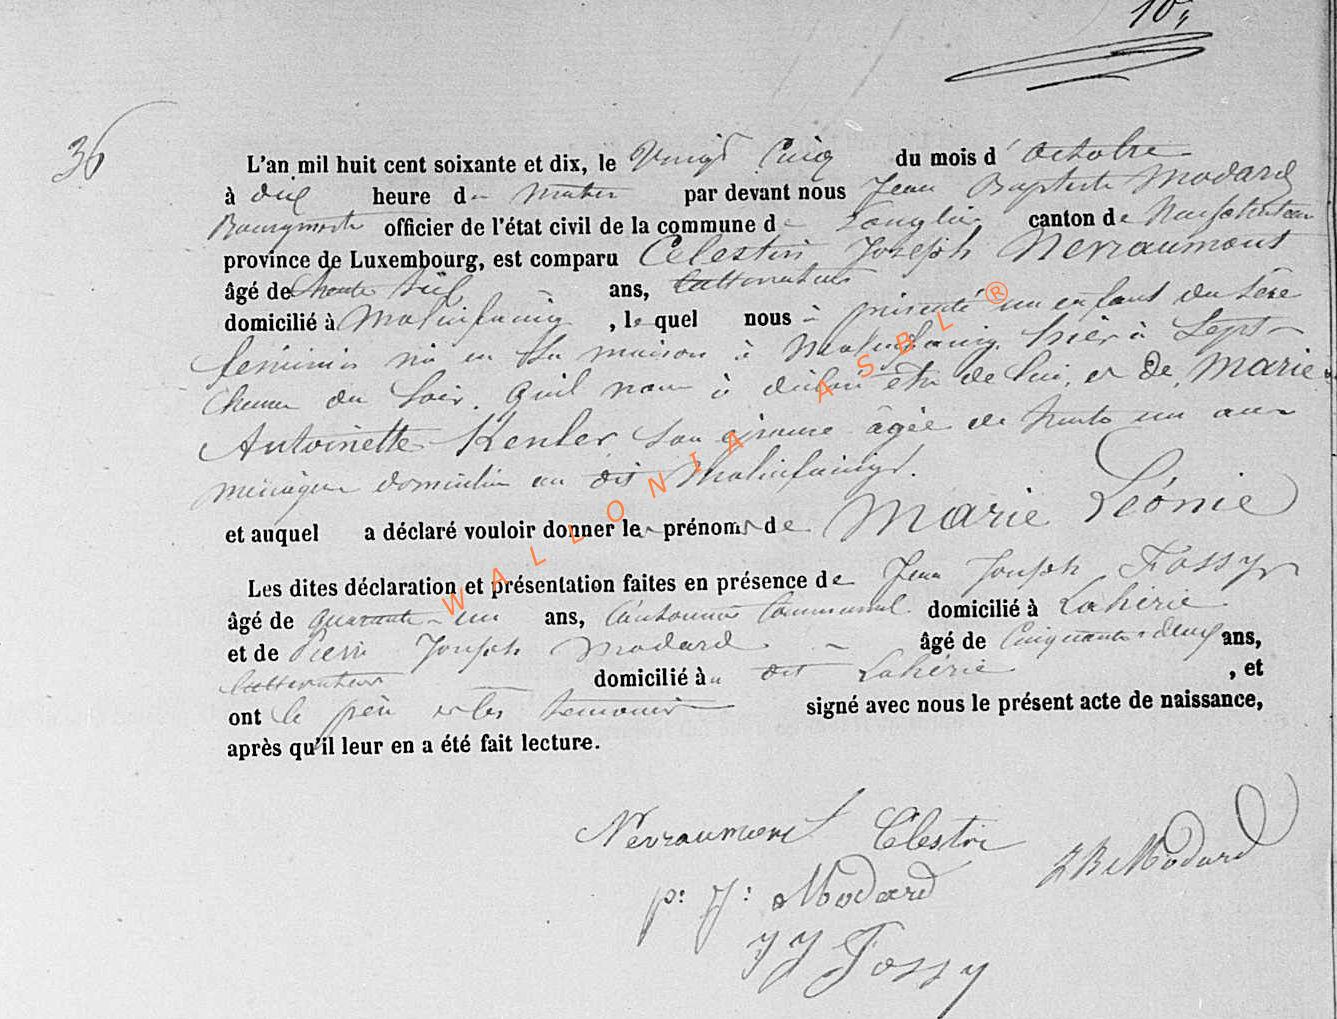 10,
36
L'an mil huit cent soixante et dix, le Vingt Cinq du mois d' Octobre
à dix heure du matin par devant nous Jean Baptiste Modard
Bourgmestre officier de l'état civil de la commune de Longlier canton de Neufchateau
province de Luxembourg, est comparu Célestin Joseph Nevraumont
âgé de trente ans, Cultivateur
domicilié à Molinfaing, le quel nous à présenté un enfant du sexe
féminin né en sa maison à Molinfaing, hier à Sept
heure du Soir, quil nous à déclaré être de lui, et de Marie
Antoinette Kenler son épouse âgée de trente un ans
ménagère domiciliée au dit Molinfaing.
et auquel a déclaré vouloir donner les prénoms de Marie Léonie
Les dites déclaration et présentation faites en présence de Jean Joseph Fossy
âgé de quarante-un ans, Cantonnier Communal domicilié à Lahérie
et de Pierre Joseph Modard - âgé de Cinquante-deux ans,
Cultivateur domicilié au dit Lahérie, et
ont le père et les témoins signé avec nous le présent acte de naissance,
après qu'il leur en a été fait lecture.
Nevraumont Célestin
JB Modard
p: J: Modard
JJ Fossy
WALLONIA ASBL ®